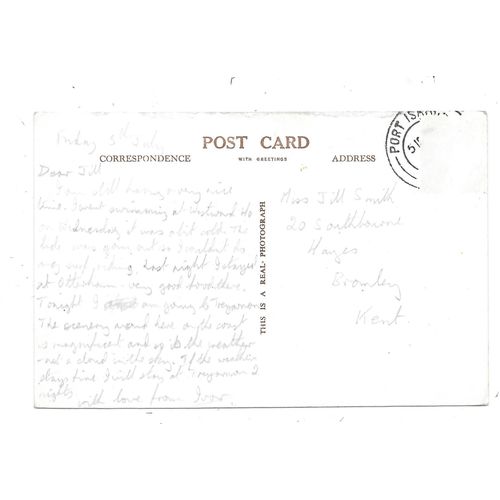 POST CARD
CORRESPONDENCE WITH GREETINGS ADDRESS
PORT ISAAC
Friday 5th July
Dear Jill
I am still having a very nice
time. I went swimming at Westward Ho
on Wednesday it was a bit cold. The
tide was going out so I couldn't do
any surf riding. Last night I stayed
at Otterham - very good
Tonight I am going to Treyarnon
The scenery around here on the coast
is magnificent and so is the weather
- not a cloud in the sky. If the weather
stays fine I will stay at Treyarnon 2
nights
with love from Ivor.
THIS IS A REAL PHOTOGRAPH
Miss Jill Smith
20 Southbourne
Hayes
Bromley
Kent.